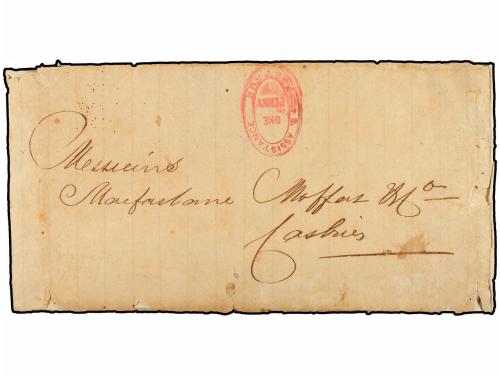 ONE
PENNY
ASSISTANCE
Messieurs
Macfarlane Moffat & Co
Castries